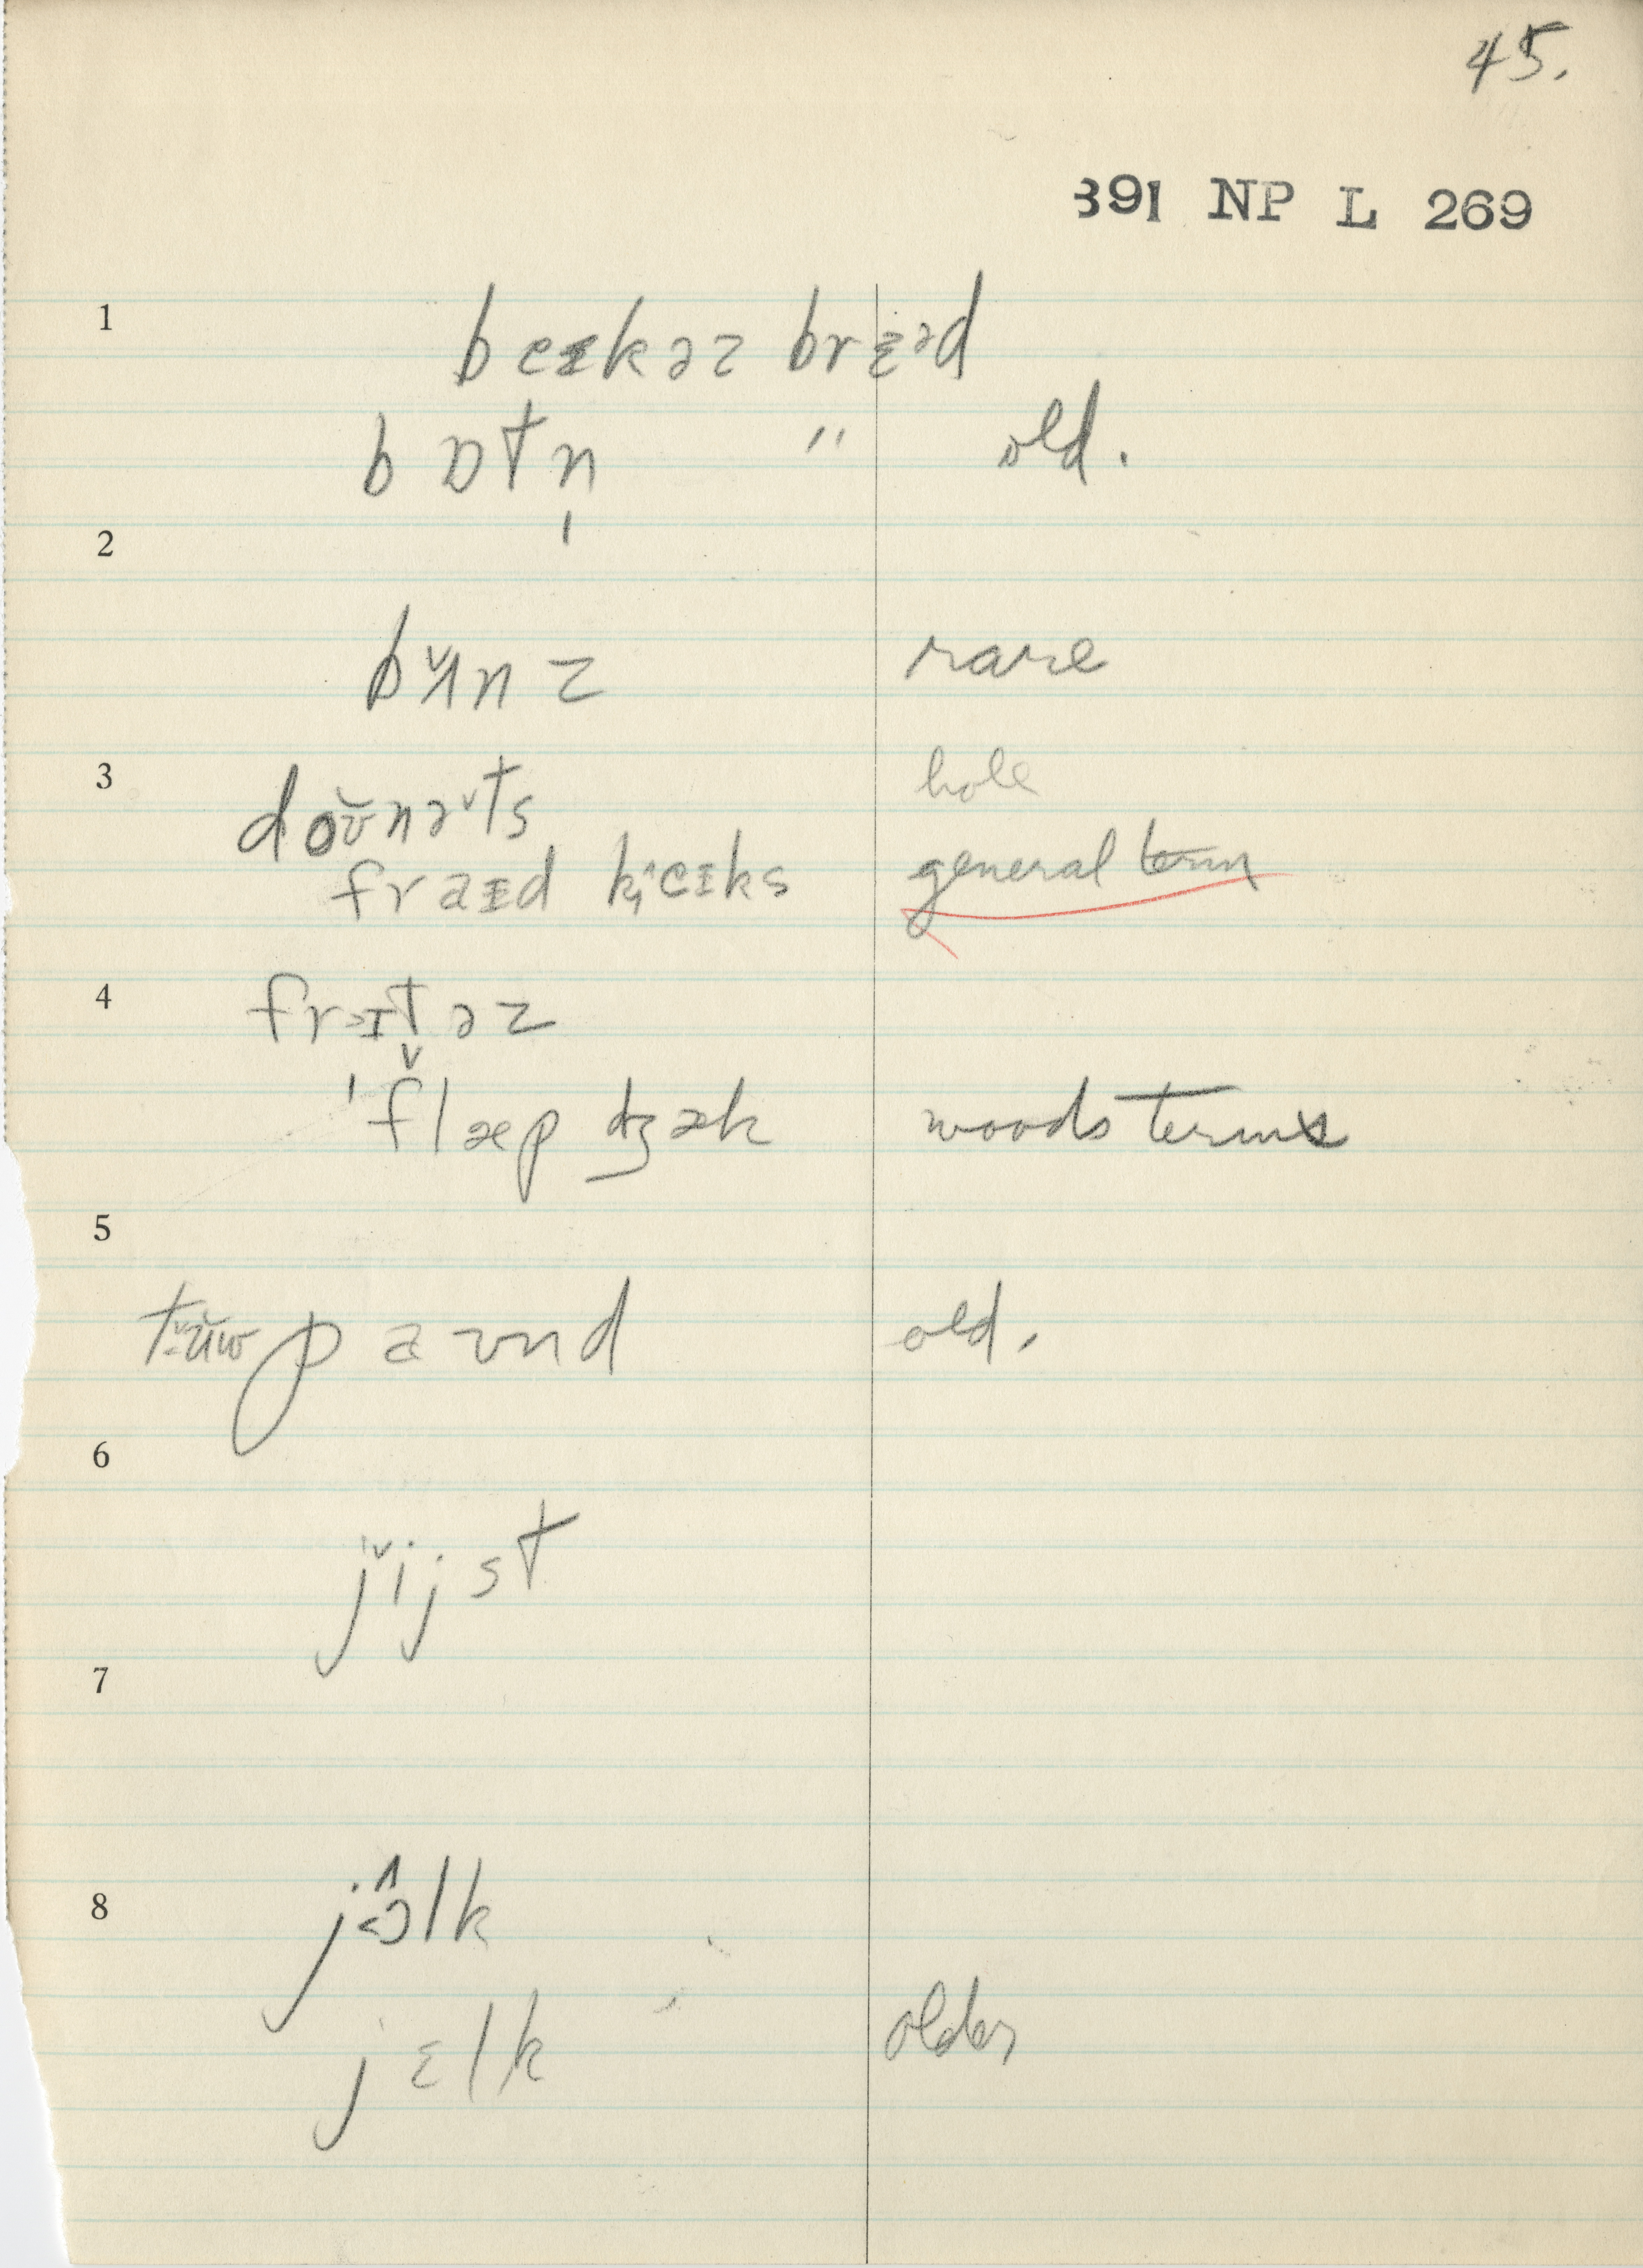 45.
391 NP L 269
1 beɪkəz brɛəd
bɒtn̩ " old.
2
bʌ̌nz rare
3 doʊ̌nəˇts hole
fraɪd k̟ʰeɪks general term
4 frɪtəz
ˈflæp dʒæk woods terms
5
tʉ̌w paʊnd old.
6
jǐjst
7
8 jɔ̂lk
jɛlk older